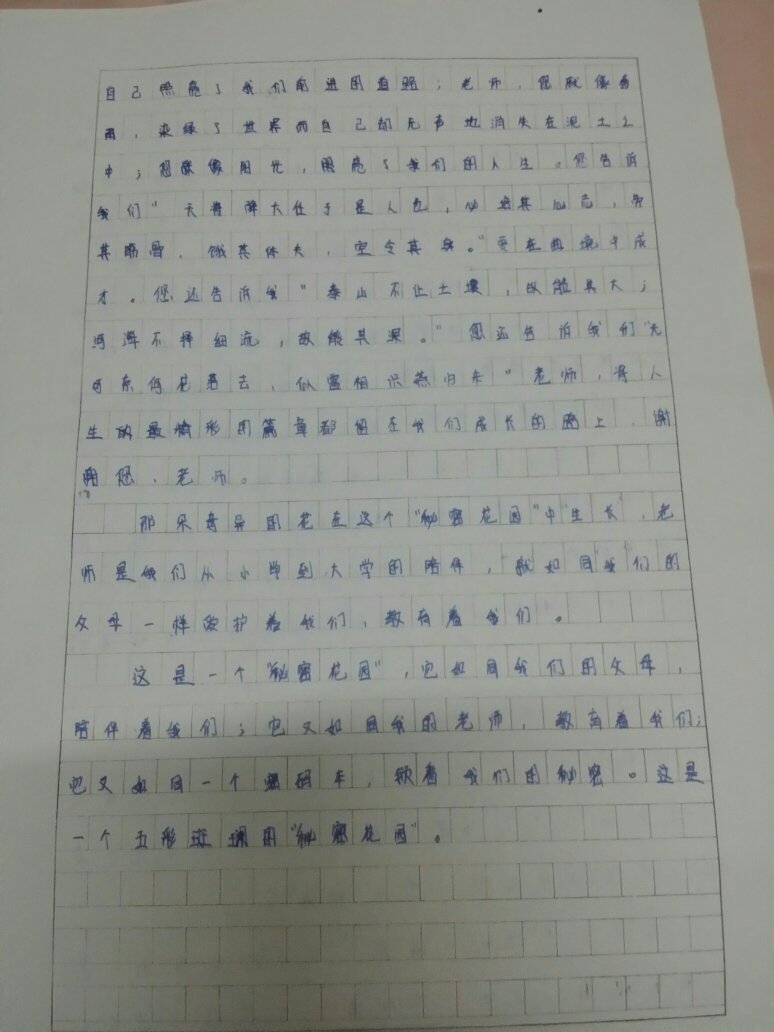 自己照亮了我们前进的道路；老师，您就像春
雨，染绿了世界而自己却无声地消失在泥土之
中；您就像阳光，照亮了我们的人生。您告诉
我们"天将降大任于是人也，必苦其心志，劳
其筋骨，饿其体夫，空令其身。"要在困境中成
才。您还告诉我"泰山不让土壤，故能其大；
河海不择细流，故能其深。"您还告诉我们"无
可奈何花落去，似曾相识燕归来"老师，将人
生的最精彩的篇章都留在我们成长的路上，谢
谢您，老师。
那朵奇异的花在这个"秘密花园"中"生长"，老
师是我们从小学到大学的陪伴，就如同我们的
父母一样爱护着我们，教育着我们。
这是一个"秘密花园"，它如同我们的父母，
陪伴着我们；它又如同我的老师，教育着我们；
它又如同一个密码本，锁着我们的秘密。这是
一个五彩斑斓的"秘密花园"。